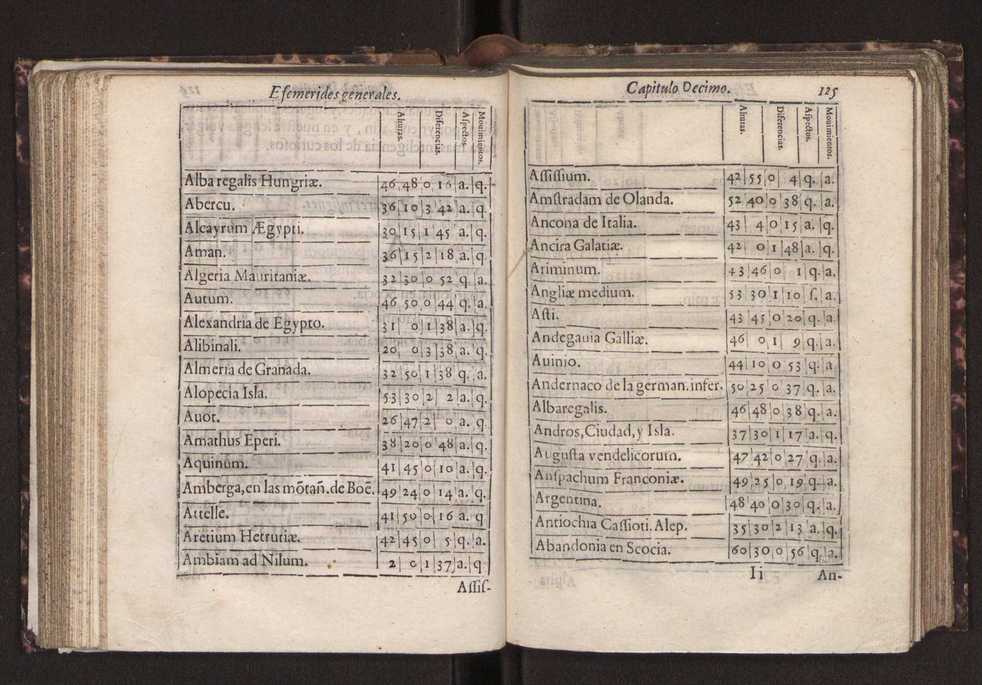 Efemerides generales.
Alturas. Diferencias. Aspectos. Mouimientos.
Alba regalis Hungriæ. 46 48 0 16 a. q.
Abercu. 36 10 3 42 a. q.
Alcayrum Ægypti. 30 15 1 45 a. q.
Aman. 36 15 2 18 a. q.
Algeria Mauritaniæ. 32 30 0 52 q. a.
Autum. 46 50 0 44 q. a.
Alexandria de Egypto. 31 0 1 38 a. q.
Alibinali. 20 0 3 38 a. q.
Almeria de Granada. 32 50 1 38 q. a.
Alopecia Isla. 53 30 2 2 a. q.
Auot. 26 47 2 0 a. q.
Amathus Eperi. 38 20 0 48 a. q.
Aquinum. 41 45 0 10 a. q.
Amberga, en las mõtañ. de Boẽ. 49 24 0 14 a. q.
Attelle. 41 50 0 16 a. q
Aretium Hetrutiæ. 42 45 0 5 q. a.
Ambiam ad Nilum. 2 0 1 37 a. q
Assis-
Capitulo Decimo. 125
Alturas. Diferencias. Aspectos. Mouimientos.
Assissium. 42 55 0 4 q. a.
Amstradam de Olanda. 52 40 0 38 q. a.
Ancona de Italia. 43 4 0 15 a. q.
Ancira Galatiæ. 42 0 1 48 a. q.
Ariminum. 43 46 0 1 q. a.
Angliæ medium. 53 30 1 10 s. a.
Asti. 43 45 0 20 q. a.
Andegauia Galliæ. 46 0 1 9 q. a.
Auinio. 44 10 0 53 q. a
Andernaco de la german. infer. 50 25 0 37 q. a.
Albaregalis. 46 48 0 38 q. a.
Andros, Ciudad, y Isla. 37 30 1 17 a. q.
Augusta vendelicorum. 47 42 0 27 q. a.
Anspachum Franconiæ. 49 25 0 19 q. a.
Argentina. 48 40 0 30 q. a.
Antiochia Cassioti. Alep. 35 30 2 13 a. q.
Abandonia en Scocia. 60 30 0 56 q. a.
Ii An-